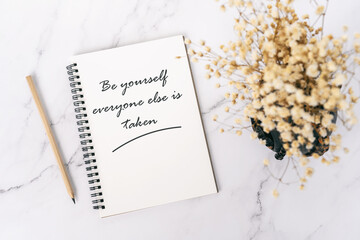 Be yourself
everyone else is
taken